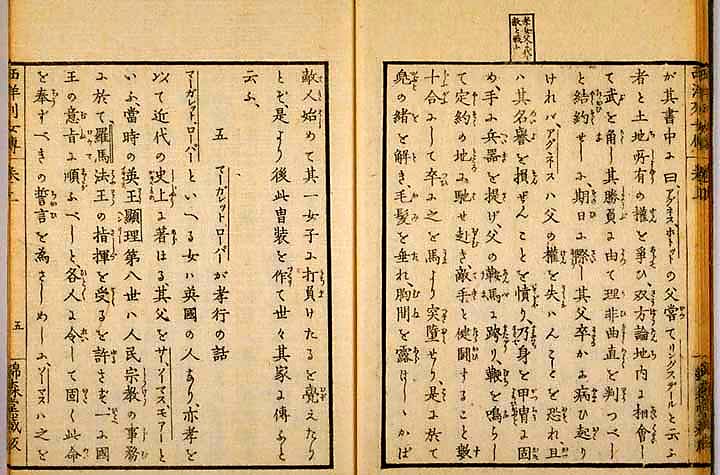 孝女父に代り
敵と戰ふ
が其書中に曰、アグネスホトットの父嘗て、リングスデールと云ふ
者と土地所有の權を爭ひ、双方論地内に相會し
て武を角し其勝負に由て理非曲直を判つべし
と結約せしに期日に際し其父卒かに病ひ起り
けれバ、アグネスハ父の權を失ハんことを恐れ、且
ハ其名譽を損ぜんことを憤り、乃身を甲冑に固
め、手に兵器を提げ、父の戰馬に跨り、鞭を鳴らし
て定約の地に馳せ赴き敵手と健鬪すること數
十合にして卒に之を馬より突墮せり、是に於て
兜の緒を解き、毛髮を垂れ、胸間を露はしゝかば
敵人始めて其一女子に打負けたるを覺えたり
とぞ、是より後此冑裝を作て世々其家に傳ふと
云ふ、
五 マーガレット、ローパーが孝行の話
マーガレット、ローパーといへる女ハ英國の人なり、亦孝を
以て近代の史上に著はる、其父をサ、ソーマス、モアーと
いふ、當時の英王顯理第八世ハ人民宗教の事務
に於て、羅馬法王の指揮を受るを許さず、一に國
王の意旨に順ふべしと各人に令して固く此命
を奉ずべきの誓言を為さしめしに、ソーマスハ之を
西洋列女傳 五 錦森堂藏板